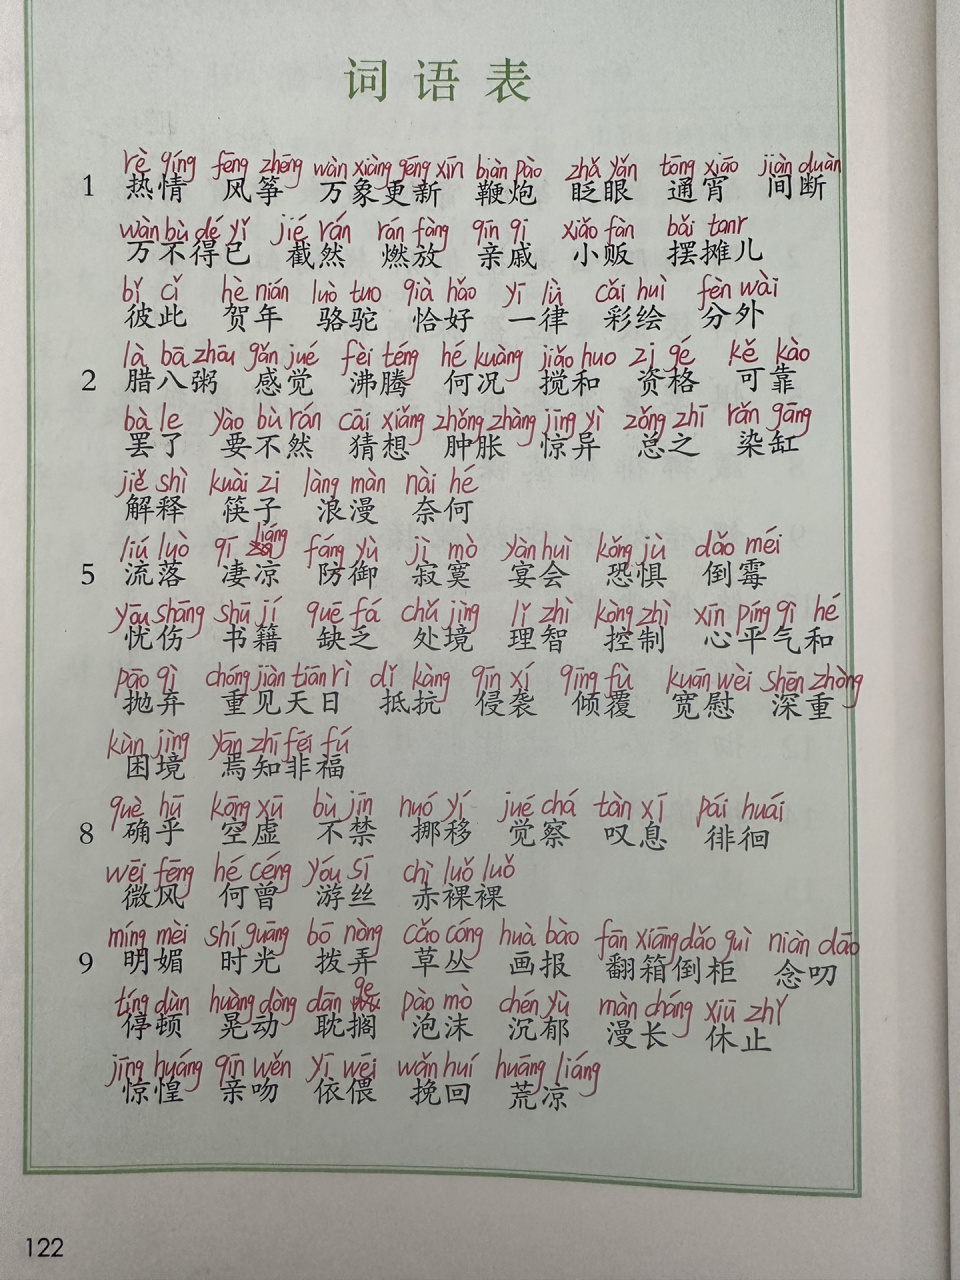 词语表
rè qíng fēng zhēng wàn xiàng gēng xīn biān pào zhǎ yǎn tōng xiāo jiàn duàn
1 热情 风筝 万象更新 鞭炮 眨眼 通宵 间断
wàn bù dé yǐ jié rán rán fàng qīn qi xiǎo fàn bǎi tanr
万不得已 截然 燃放 亲戚 小贩 摆摊儿
bǐ cǐ hè nián luò tuo qià hǎo yī lǜ cǎi huì fèn wài
彼此 贺年 骆驼 恰好 一律 彩绘 分外
là bā zhōu gǎn jué fèi téng hé kuàng jiǎo huo zī gé kě kào
2 腊八粥 感觉 沸腾 何况 搅和 资格 可靠
bà le yào bù rán cāi xiǎng zhǒng zhàng jīng yì zǒng zhī rǎn gāng
罢了 要不然 猜想 肿胀 惊异 总之 染缸
jiě shì kuài zi làng màn nài hé
解释 筷子 浪漫 奈何
liú luò qī liáng fáng yù jì mò yàn huì kǒng jù dǎo méi
5 流落 凄凉 防御 寂寞 宴会 恐惧 倒霉
yōu shāng shū jí quē fá chǔ jìng lǐ zhì kòng zhì xīn píng qì hé
忧伤 书籍 缺乏 处境 理智 控制 心平气和
pāo qì chóng jiàn tiān rì dǐ kàng qīn xí qīng fù kuān wèi shēn zhòng
抛弃 重见天日 抵抗 侵袭 倾覆 宽慰 深重
kùn jìng yān zhī fēi fú
困境 焉知非福
què hū kōng xū bù jīn nuó yí jué chá tàn xī pái huái
8 确乎 空虚 不禁 挪移 觉察 叹息 徘徊
wēi fēng hé céng yóu sī chì luǒ luǒ
微风 何曾 游丝 赤裸裸
míng mèi shí guāng bō nòng cǎo cóng huà bào fān xiāng dǎo guì niàn dāo
9 明媚 时光 拨弄 草丛 画报 翻箱倒柜 念叨
tíng dùn huàng dòng dān ge pào mò chén yù màn cháng xiū zhǐ
停顿 晃动 耽搁 泡沫 沉郁 漫长 休止
jīng huáng qīn wěn yī wēi wǎn huí huāng liáng
惊惶 亲吻 依偎 挽回 荒凉
122